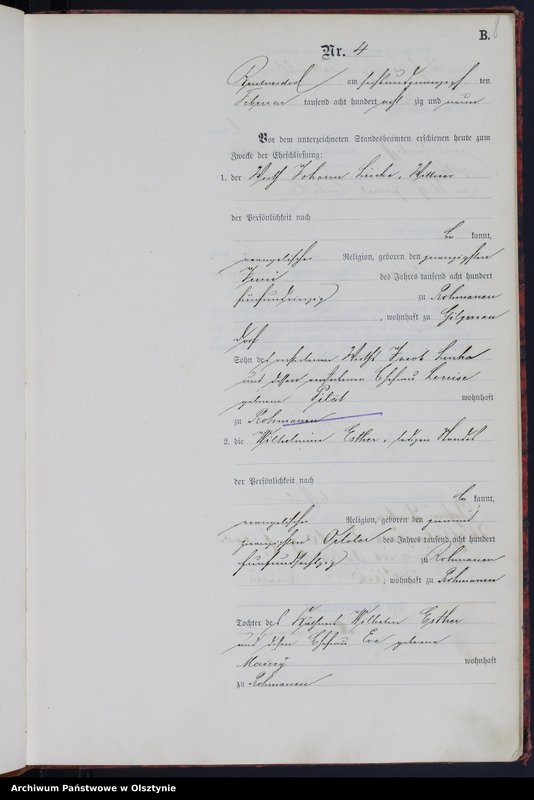 B.
8
Nr. 4
am sechsundzwanzigsten
Februar tausend acht hundert achtzig und neun
Vor dem unterzeichneten Standesbeamten erschienen heute zum
Zwecke der Eheschließung:
1. der Wirth Johann Linka, Wittwer
der Persönlichkeit nach
be kannt,
evangelischer Religion, geboren den zwanzigsten
Juni des Jahres tausend acht hundert
zu Rohmanen
, wohnhaft zu Hilgenau
dorf
Sohn des verstorbenen Wirths Jacob Linka
und dessen verstorbene Ehefrau Louise
geborene Pilat wohnhaft
zu Rohmanen
2. die Wilhelmine Esther, ledigen Standes
der Persönlichkeit nach
be kannt,
evangelischer Religion, geboren den
zwanzigsten Oktober des Jahres tausend acht hundert
fünfundsechszig zu Rohmanen
, wohnhaft zu Rohmanen
Tochter des Wilhelm Esther
und dessen Ehefrau Eva geborene
wohnhaft
zu Rohmanen
Archiwum Państwowe w Olsztynie